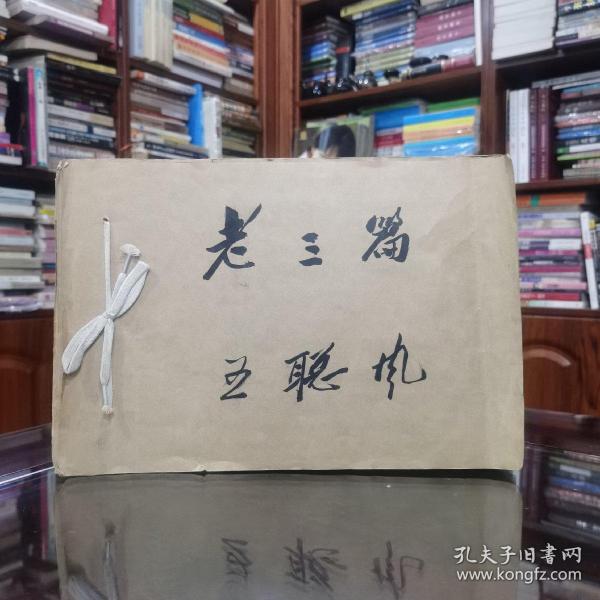 老三篇
王聪凤
孔夫子旧书网
www.kongfz.com